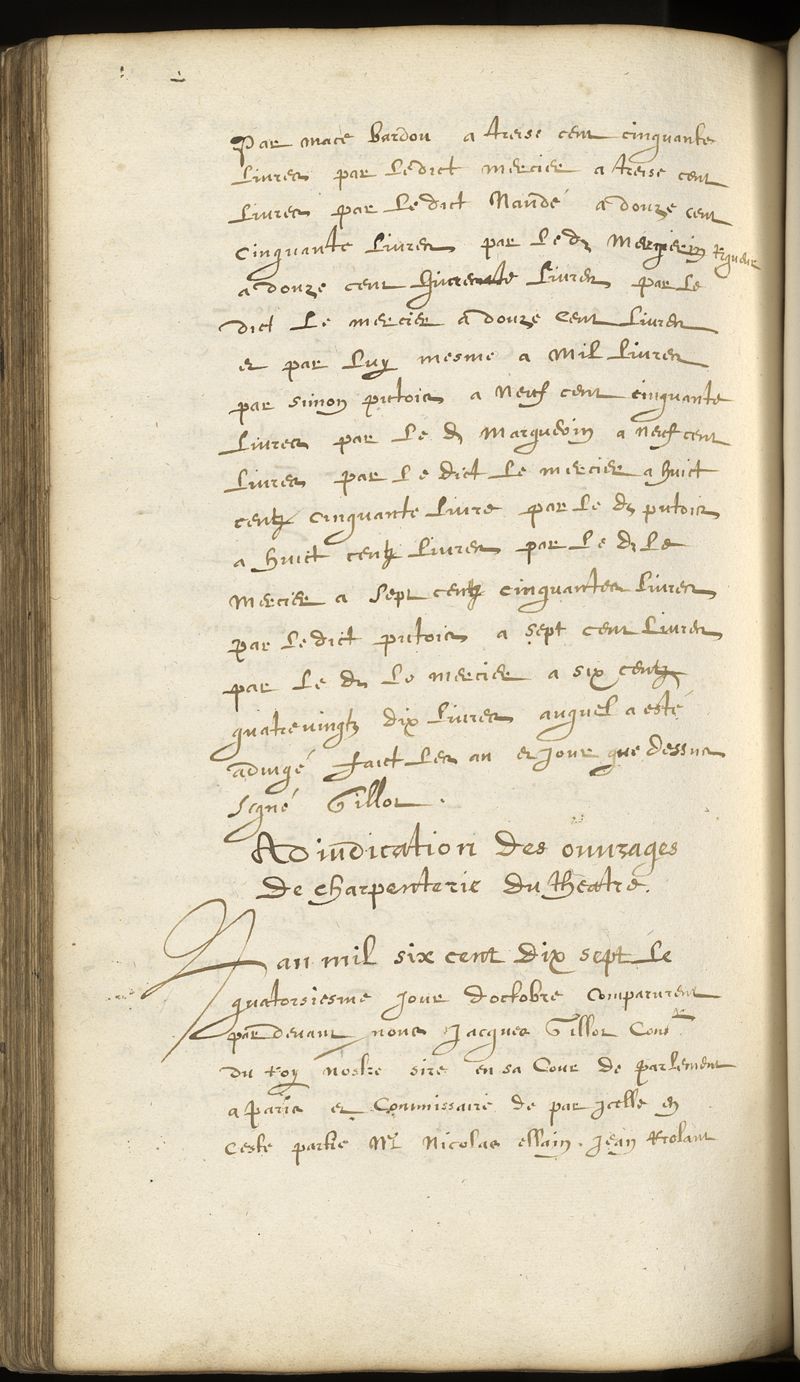 Par mace bardou a treise cent cinquante
livres par ledict mercier a treise cent
livres par ledict Naudé a douze cent
cinquante livres par led
a douze cent livres par le
dict le mercier a douze cent livres
et par luy mesme a mil livres
par simon putois a neuf cent cinquante
livres par le d marquerin a neuf cent
livres par le dict le mercier a huict
centz cinquante livre par le d putois
a huict centz livres par le d le
mercier a sept centz cinquantes livres
par ledict putois a sept cent livres
par le d le mercier a six centz
quatrevingtz dix livres auquel a esté
adiugé faict les an et jour que dessus
signé Gillot.
Adiudication des ouvrages
de charpenterie du theatre.
Lan mil six cent dix sept le
quatorsiesme jour doctobre comparurent
par devant nous Jacques Gillot Con^er
du roy nostre sire en sa cour de parlement
a paris et commissaire de par jcelle en
ceste partie M^e Nicolas ellain. jean Riolant